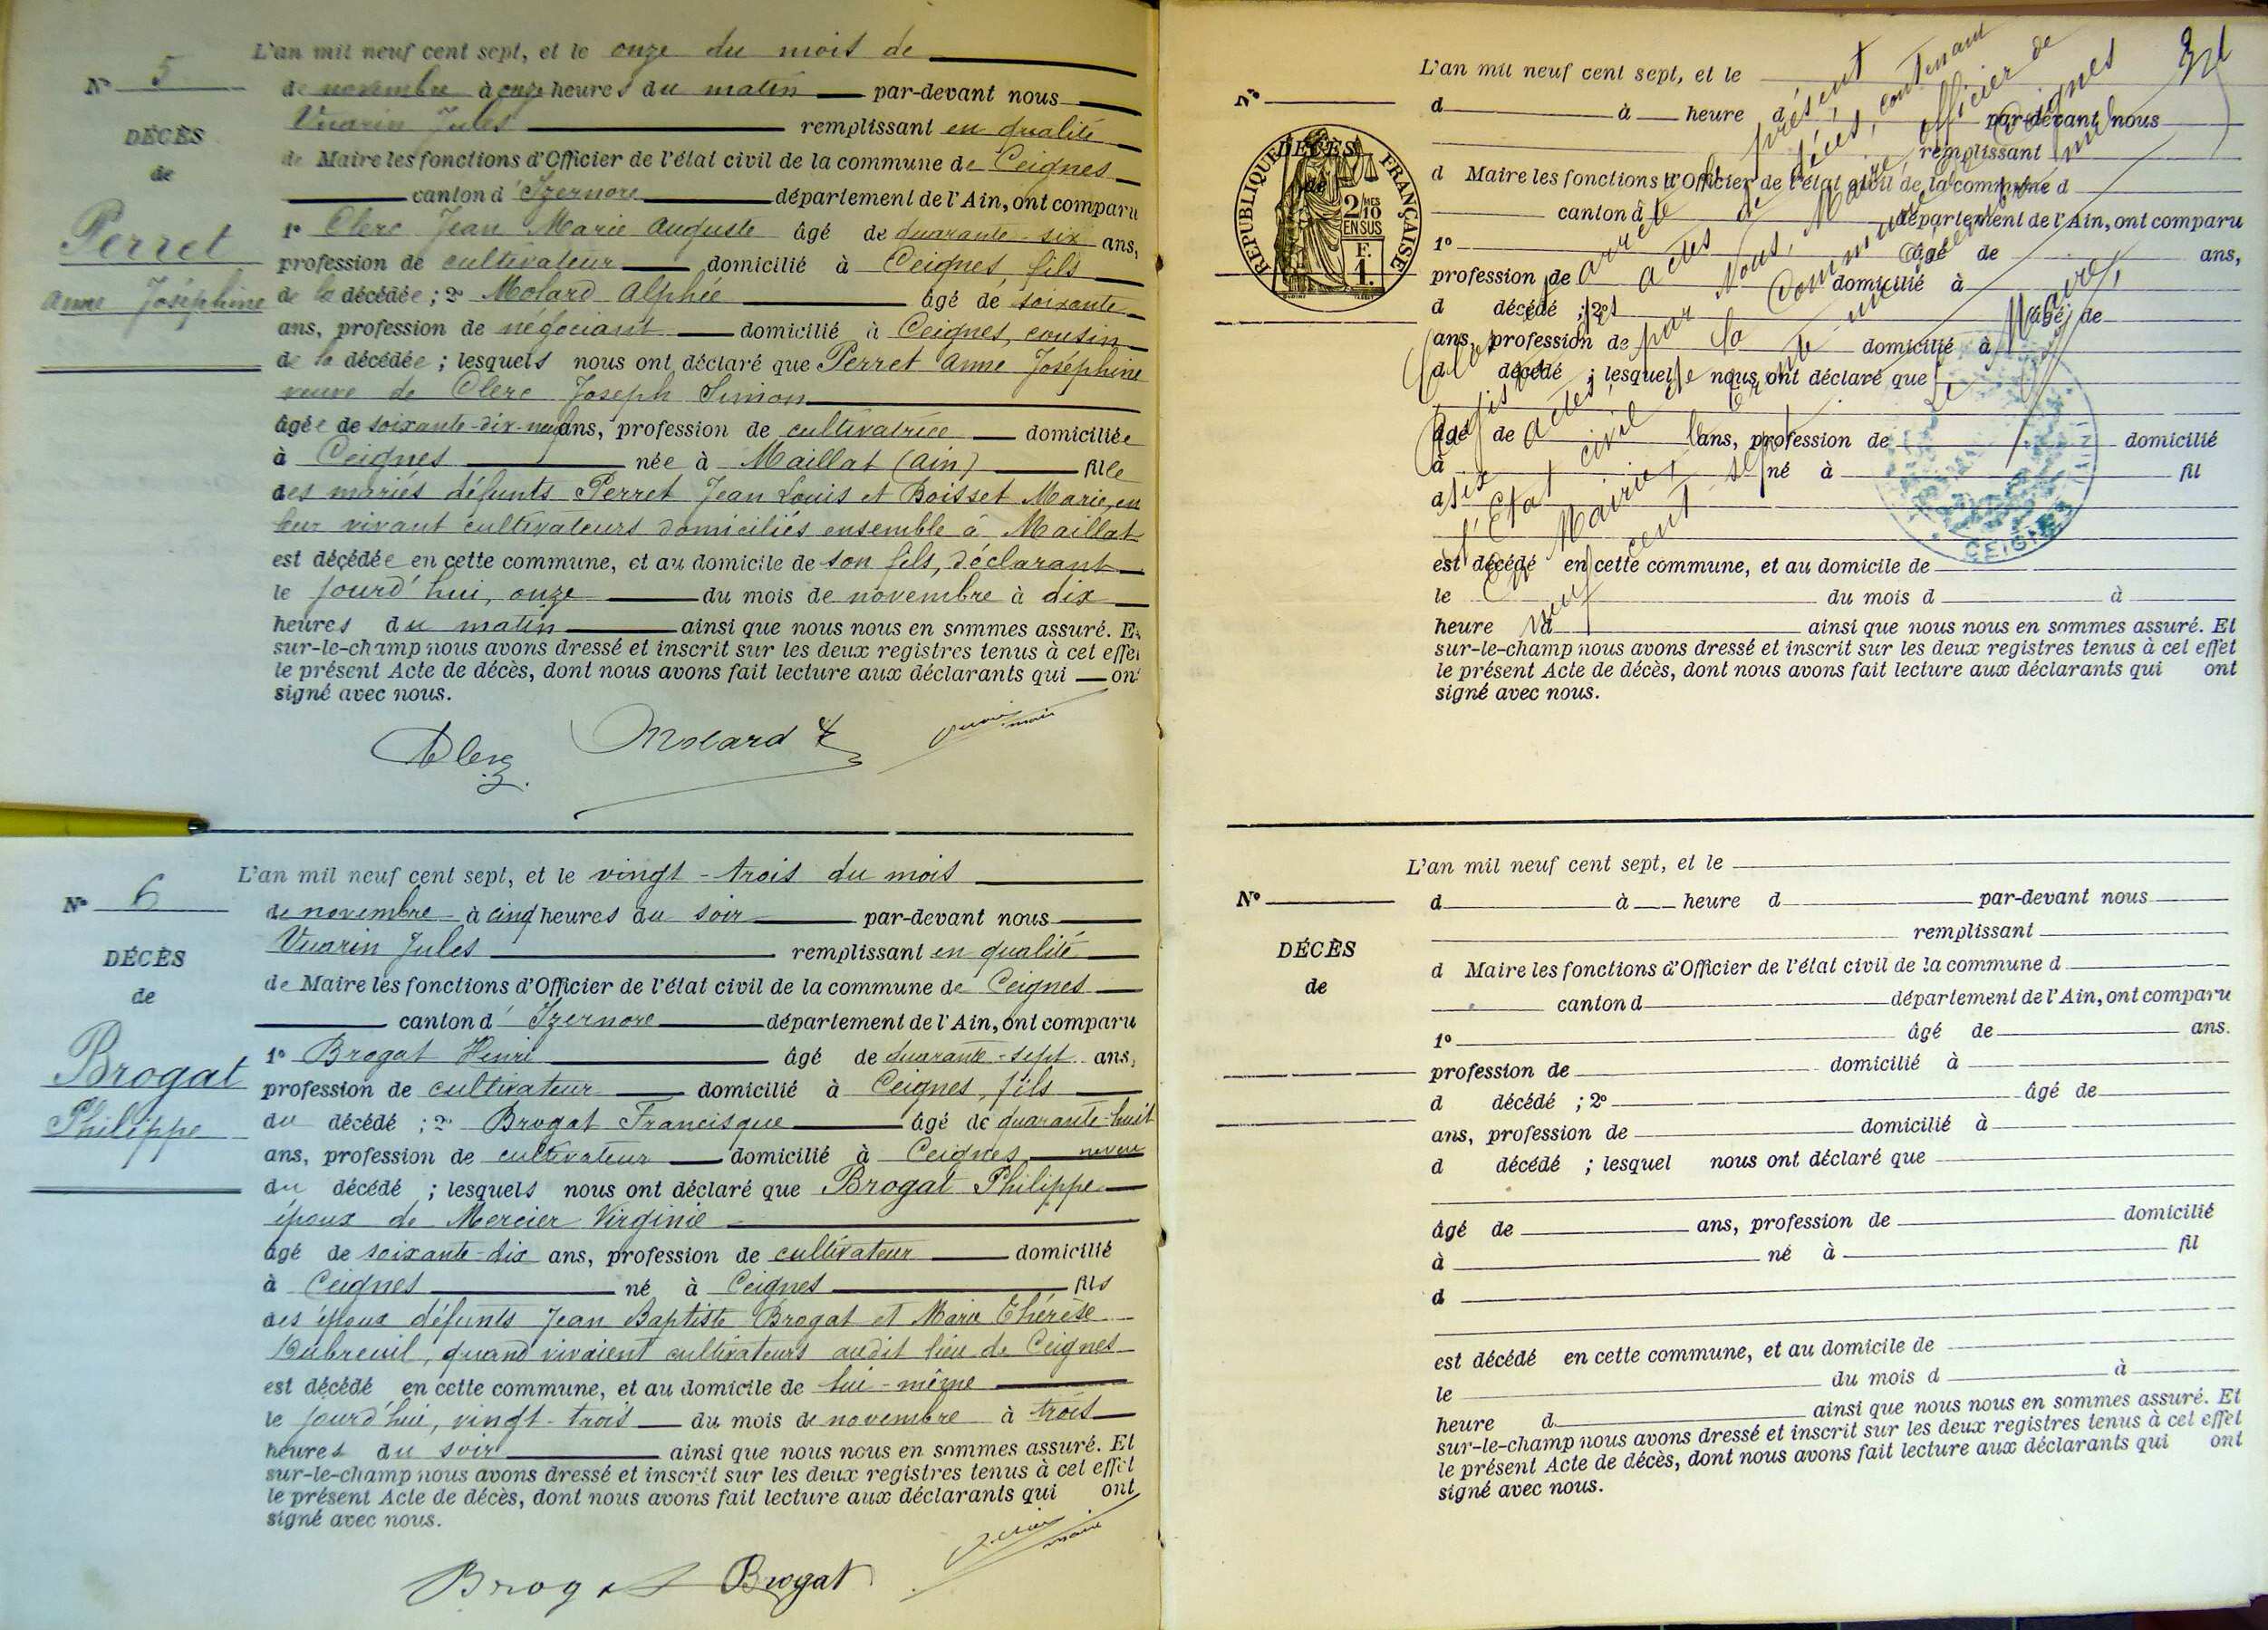 L'an mil neuf cent sept, et le onze du mois de
N° 5 de novembre à onze heures du matin par-devant nous
DÉCÈS Vuarin Jules remplissant en qualité
de de Maire les fonctions d'Officier de l'état civil de la commune de Ceignes
canton d'Izernore département de l'Ain, ont comparu
Perret 1° Clerc Jean Marie Auguste âgé de quarante-six ans,
profession de cultivateur domicilié à Ceignes, fils
Anne Joséphine de la décédée ; 2° Molard Alphée âgé de soixante
ans, profession de négociant domicilié à Ceignes, cousin
de la décédée ; lesquels nous ont déclaré que Perret Anne Joséphine
veuve de Clerc Joseph Simon
âgée de soixante-dix-neuf ans, profession de cultivatrice domiciliée
à Ceignes née à Maillat (Ain) fille
des mariés défunts Perret Jean Louis et Boisset Marie, en
leur vivant cultivateurs domiciliés ensemble à Maillat
est décédée en cette commune, et au domicile de son fils, déclarant
le jourd'hui, onze du mois de novembre à dix
heures du matin ainsi que nous nous en sommes assuré. Et
sur-le-champ nous avons dressé et inscrit sur les deux registres tenus à cet effet
le présent Acte de décès, dont nous avons fait lecture aux déclarants qui ont
signé avec nous.
Clerc Molard Vuarin
maire
L'an mil neuf cent sept, et le vingt-trois du mois
N° 6 de novembre à cinq heures du soir par-devant nous
DÉCÈS Vuarin Jules remplissant en qualité
de de Maire les fonctions d'Officier de l'état civil de la commune de Ceignes
canton d'Izernore département de l'Ain, ont comparu
Brogat 1° Brogat Henri âgé de quarante-sept ans,
profession de cultivateur domicilié à Ceignes, fils
Philippe du décédé ; 2° Brogat Francisque âgé de quarante-huit
ans, profession de cultivateur domicilié à Ceignes neveu
du décédé ; lesquels nous ont déclaré que Brogat Philippe
époux de Mercier Virginie
âgé de soixante-dix ans, profession de cultivateur domicilié
à Ceignes né à Ceignes fils
des époux défunts Jean Baptiste Brogat et Marie Thérèse
Dubreuil, quand vivaient cultivateurs audit lieu de Ceignes
est décédé en cette commune, et au domicile de lui-même
le jourd'hui, vingt-trois du mois de novembre à trois
heures du soir ainsi que nous nous en sommes assuré. Et
sur-le-champ nous avons dressé et inscrit sur les deux registres tenus à cet effet
le présent Acte de décès, dont nous avons fait lecture aux déclarants qui ont
signé avec nous.
Brogat Brogat Vuarin
maire
L'an mil neuf cent sept, et le
N° d à heure d par-devant nous
DÉCÈS remplissant
de d Maire les fonctions d'Officier de l'état civil de la commune d
canton d département de l'Ain, ont comparu
1° âgé de ans,
profession de domicilié à
d décédé ; 2° âgé de
ans, profession de domicilié à
d décédé ; lesquel nous ont déclaré que
âgé de ans, profession de domicilié
à né à fil
d
est décédé en cette commune, et au domicile de
le du mois d à
heure d ainsi que nous nous en sommes assuré. Et
sur-le-champ nous avons dressé et inscrit sur les deux registres tenus à cet effet
le présent Acte de décès, dont nous avons fait lecture aux déclarants qui ont
signé avec nous.
REPUBLIQUE FRANÇAISE
2/10 MES
EN SUS
F.
1.
Clos et arrêté le présent
Registre de décès, contenant
six actes, par Nous, Maire, officier de
l'Etat civil de la Commune de Ceignes
En Mairie, le trente un décembre mil
neuf cent sept.
Le Maire,
CEIGNES
L'an mil neuf cent sept, et le
N° d à heure d par-devant nous
DÉCÈS remplissant
de d Maire les fonctions d'Officier de l'état civil de la commune d
canton d département de l'Ain, ont comparu
1° âgé de ans.
profession de domicilié à
d décédé ; 2° âgé de
ans, profession de domicilié à
d décédé ; lesquel nous ont déclaré que
âgé de ans, profession de domicilié
à né à fil
d
est décédé en cette commune, et au domicile de
le du mois d à
heure d ainsi que nous nous en sommes assuré. Et
sur-le-champ nous avons dressé et inscrit sur les deux registres tenus à cet effet
le présent Acte de décès, dont nous avons fait lecture aux déclarants qui ont
signé avec nous.